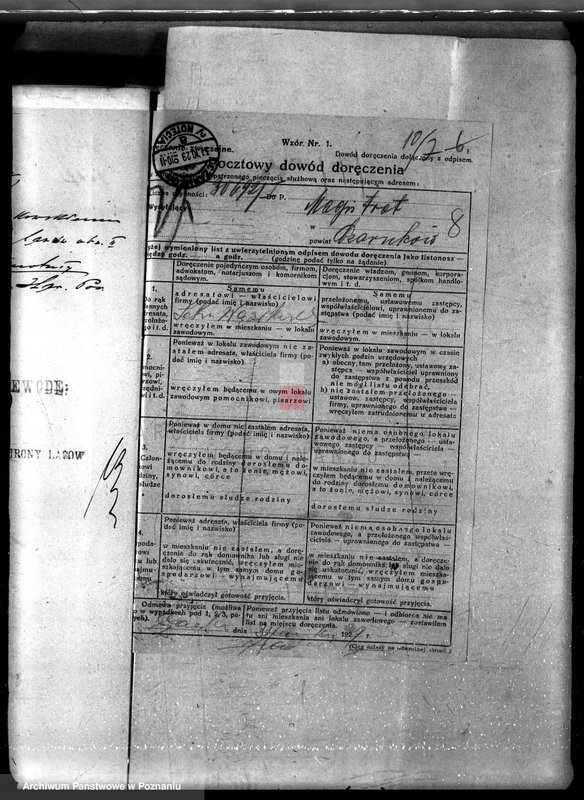 Wzór. Nr. 1.
10/7 6.
Dowód doręczenia dołączony z odpisem.
ocztowy dowód doręczenia
opatrzonego pieczęcią służbową oraz następującym adresem:
Do P.
Magistrat
w Czarnków
8
powiat
żej wymieniony list z uwierzytelnionym odpisem dowodu doręczenia jako listonosz —
ędzy godz. a godz. (godzinę podać tylko na żądanie)
Doręczenie pojedyńczym osobom, firmom,
adwokatom, notarjuszom i komornikom
sądowym.
Doręczenie władzom, gminom, korporacjom,
stowarzyszeniom, spółkom handlowym
i t. d.
1.
Do rąk
asnych
adresata,
i t. d.
Samemu
adresatowi — właścicielowi
firmy (podać imię i nazwisko)
wręczyłem w mieszkaniu — w lokalu
zawodowym.
Samemu
przełożonemu, ustawowemu zastępcy,
współwłaścicielowi, uprawnionemu do zastępstwa
(podać imię i nazwisko)
wręczyłem w mieszkaniu — w lokalu
zawodowym.
2.
i t. d.
Ponieważ w lokalu zawodowym nie zastałem
adresata, właściciela firmy (podać
imię i nazwisko)
wręczyłem będącemu w owym lokalu
zawodowym pomocnikowi, pisarzowi
Ponieważ w lokalu zawodowym w czasie
zwykłych godzin urzędowych
a) obecny tam przełożony, ustawowy zastępca
— współwłaściciel uprawniony
do zastępstwa z powodu przeszkód
nie mógł listu odebrać,
b) nie zastałem przełożonego —
ustaw. zastępcy, współwłaściciela
firmy, uprawnionego do zastępstwa —
wręczyłem zatrudnionemu u adresata:
3.
Członkowi
słudze
Ponieważ w domu nie zastałem adresata,
właściciela firmy (podać imię i nazwisko)
wręczyłem będącemu w domu i należącemu
do rodziny dorosłemu domownikowi,
a to żonie, mężowi,
synowi, córce
dorosłemu słudze rodziny
Ponieważ niema osobnego lokalu
zawodowego, a przełożonego — ustawowego
zastępcy — współwłaściciela —
uprawnionego do zastępstwa
w mieszkaniu nie zastałem, przeto wręczyłem
będącemu w domu i należącemu
do rodziny dorosłemu domownikowi,
a to żonie, mężowi, synowi, córce
dorosłemu słudze rodziny
4.
lub
Ponieważ adresata, właściciela firmy (podać
imię i nazwisko)
w mieszkaniu nie zastałem, a doręczenie
do rąk domownika lub sługi nie
dało się uskutecznić, wręczyłem mieszkającemu
w tym samym domu gospodarzowi
— wynajmującemu
który oświadczył gotowość przyjęcia.
Ponieważ niema osobnego lokalu
zawodowego, a przełożonego współwłaściciela
— uprawnionego do zastępstwa —
w mieszkaniu nie zastałem, a doręczenie
do rąk domownika lub sługi nie dało
się uskutecznić, wręczyłem mieszkającemu
w tym samym domu gospodarzowi
— wynajmującemu
który oświadczył gotowość przyjęcia.
Odmowa przyjęcia (możliwa
w wypadkach pod 1, 2, 3,
Ponieważ przyjęcia listu odmówiono — i odbiorca nie ma
tu ani mieszkania ani lokalu zawodowego — zostawiłem
list na miejscu doręczenia.
dnia 1929 r.
(Ciąg dalszy na odwrotnej stronie)
EWODĘ:
TRONY LASÓW
Archiwum Państwowe w Poznaniu